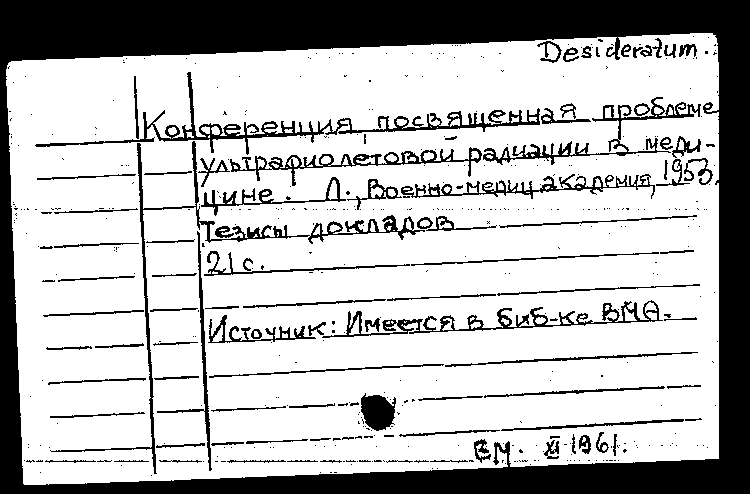 Desideratum.
Конференция, посвященная проблеме
ультрафиолетовой радиации в меди-
цине. Л., Военно-медиц. академия, 1953.
Тезисы докладов
21 с.
Источник: Имеется в биб-ке ВМА.
ВМ. XI 1961.